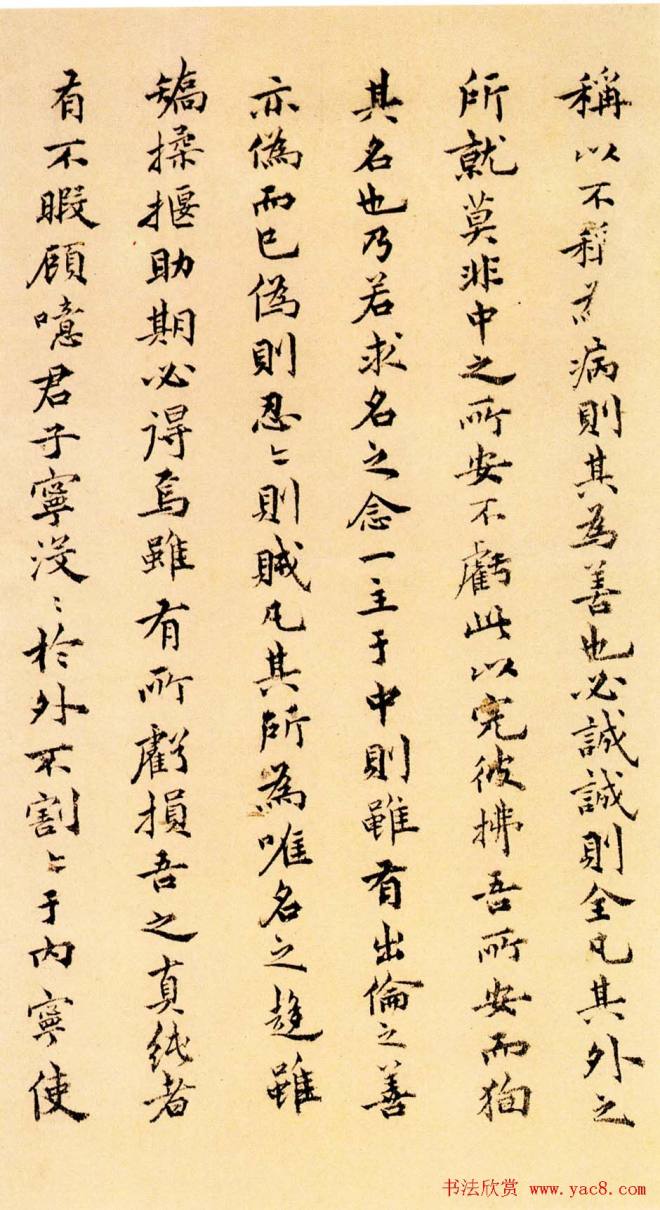 稱以不稱為病則其為善也必誠誠則全凡其外之
所就莫非中之所安不虧此以完彼拂吾所安而狥
其名也乃若求名之念一主于中則雖有出倫之善
亦偽而已偽則忍〻則賊凡其所為唯名之趍雖
矯揉揠助期必得焉雖有所虧損吾之真純者
有不暇顧噫君子寧沒〻於外不割〻于内寧使
书法欣赏 www.yac8.com